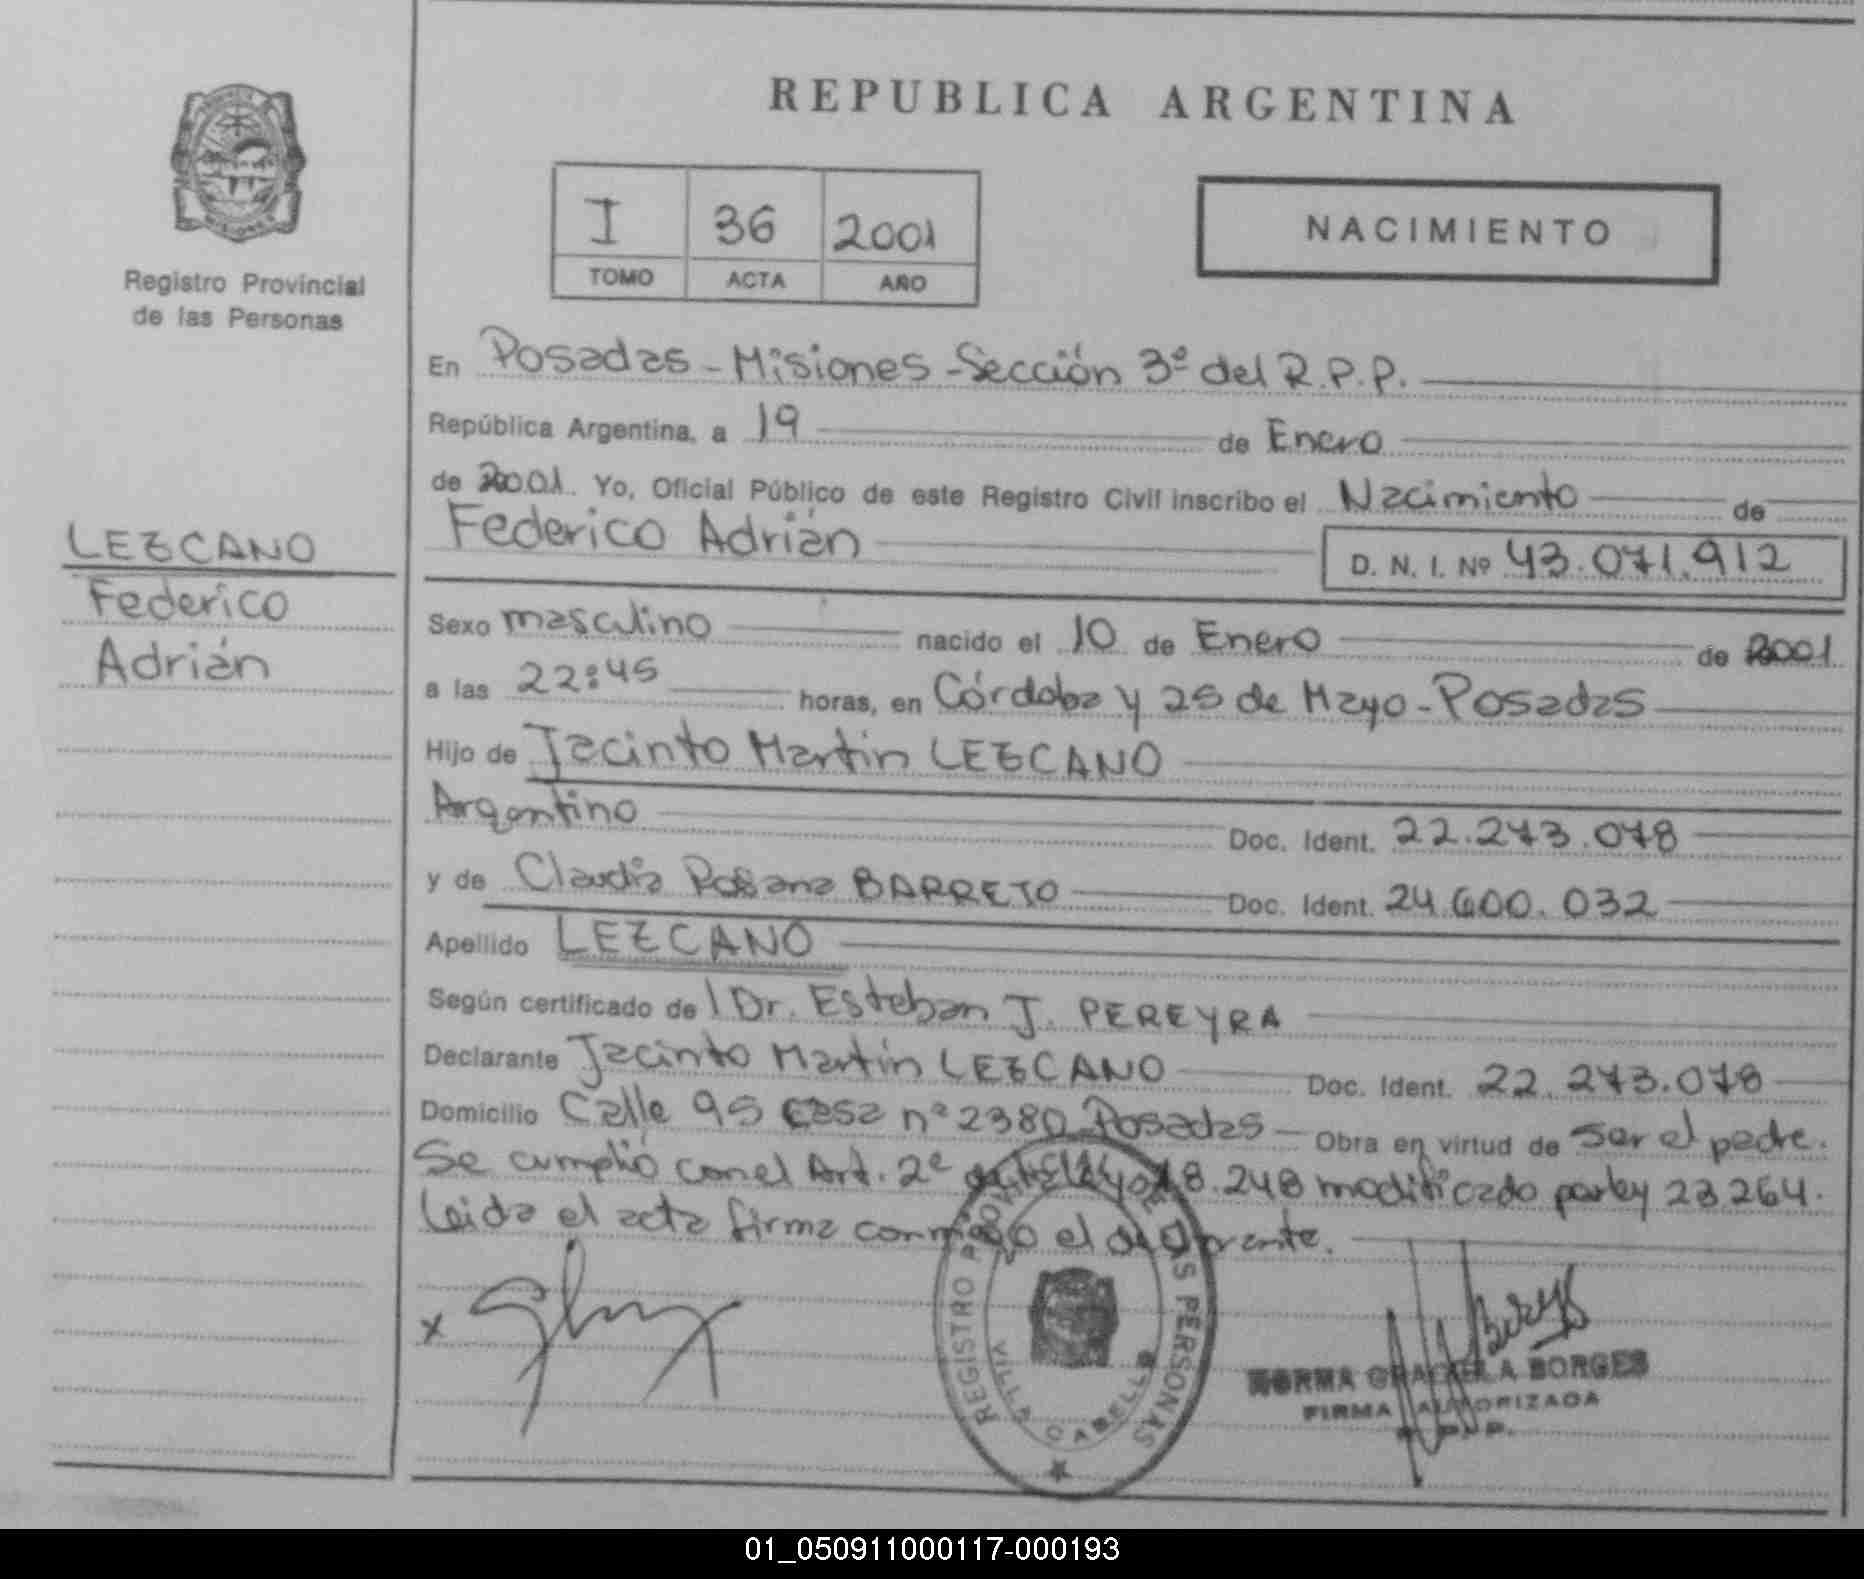 REPUBLICA ARGENTINA
I 36 2001
TOMO ACTA AÑO
NACIMIENTO
Registro Provincial
de las Personas
LEZCANO
Federico
Adrián
En Posadas - Misiones - Sección 3º del R.P.P.
República Argentina, a 19 de Enero
de 2001. Yo, Oficial Público de este Registro Civil inscribo el Nacimiento de
Federico Adrián D. N. I. Nº 43.071.912
Sexo masculino nacido el 10 de Enero de 2001
a las 22:45 horas, en Córdoba y 25 de Mayo - Posadas
Hijo de Jacinto Martín LEZCANO
Argentino Doc. Ident. 22.273.078
y de Claudia Rosana BARRETO Doc. Ident. 24.600.032
Apellido LEZCANO
Según certificado de l Dr. Esteban J. PEREYRA
Declarante Jacinto Martín LEZCANO Doc. Ident. 22.273.078
Domicilio Calle 95 casa nº 2380 Posadas Obra en virtud de ser el padre.
Se cumplió con el Art. 2º de la Ley 18.248 modificado por ley 23.264.
Leida el acta firma conmigo el declarante.
x
REGISTRO PROV. DE LAS PERSONAS
VILLA CABELLO
NORMA GRACIELA BORGES
FIRMA AUTORIZADA
R. P. P.
01_050911000117-000193